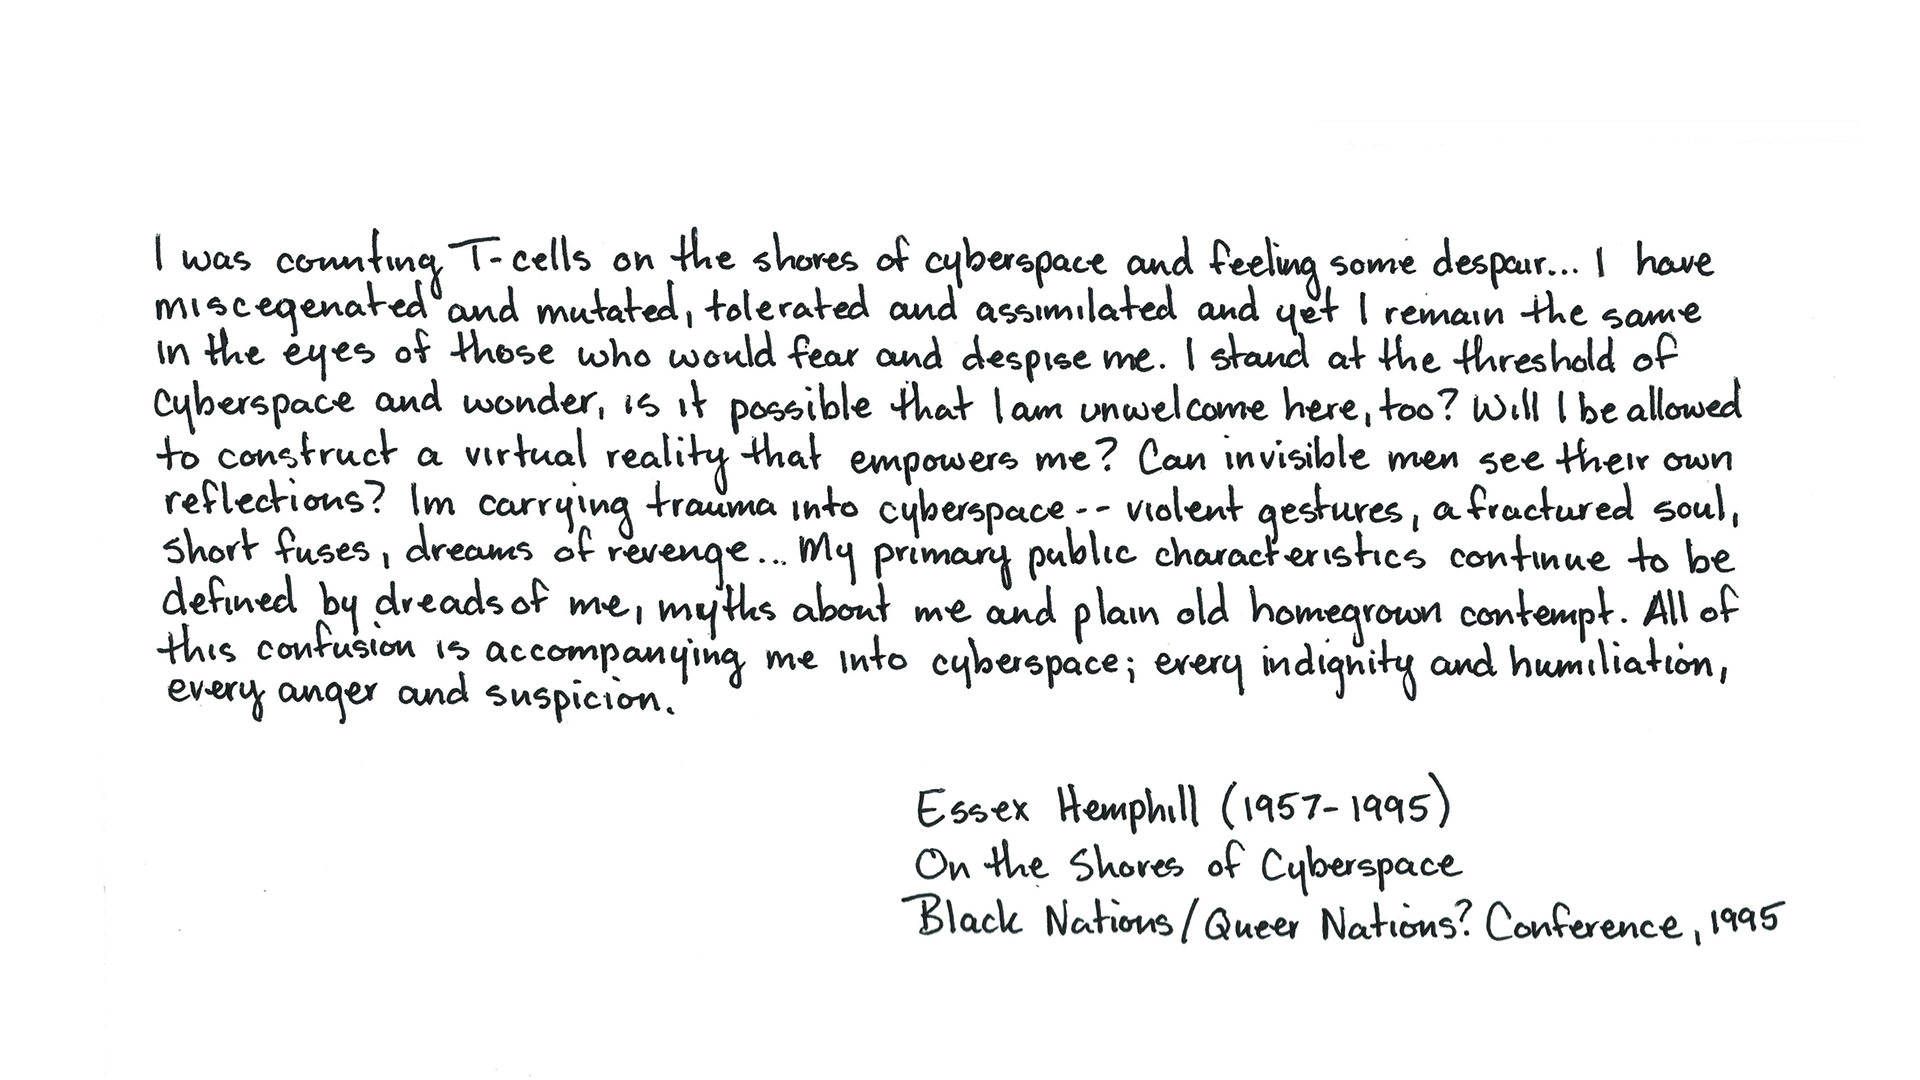 I was counting T-cells on the shores of cyberspace and feeling some despair... I have
miscegenated and mutated, tolerated and assimilated and yet I remain the same
in the eyes of those who would fear and despise me. I stand at the threshold of
Cyberspace and wonder, is it possible that I am unwelcome here, too? Will I be allowed
to construct a virtual reality that empowers me? Can invisible men see their own
reflections? Im carrying trauma into cyberspace -- violent gestures, a fractured soul,
short fuses, dreams of revenge... My primary public characteristics continue to be
defined by dreads of me, myths about me and plain old homegrown contempt. All of
this confusion is accompanying me into cyberspace; every indignity and humiliation,
every anger and suspicion.
Essex Hemphill (1957-1995)
On the Shores of Cyberspace
Black Nations/Queer Nations? Conference, 1995